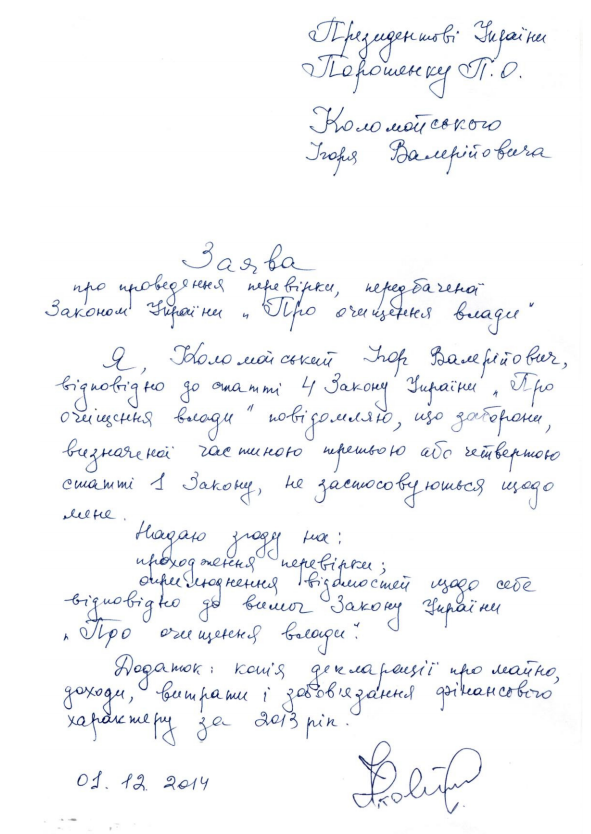 Президентові України
Порошенку П.О.
Коломойського
Ігоря Валерійовича
Заява
про проведення перевірки, передбаченої
Законом України „Про очищення влади"
Я, Коломойський Ігор Валерійович,
відповідно до статті 4 Закону України „Про
очищення влади" повідомляю, що заборони,
визначеної частиною третьою або четвертою
статті 1 Закону, не застосовуються щодо
мене.
Надаю згоду на:
проходження перевірки;
оприлюднення відомостей щодо себе
відповідно до вимог Закону України
„Про очищення влади".
Додаток: копія декларації про майно,
доходи, витрати і зобов'язання фінансового
характеру за 2013 рік.
01.12.2014